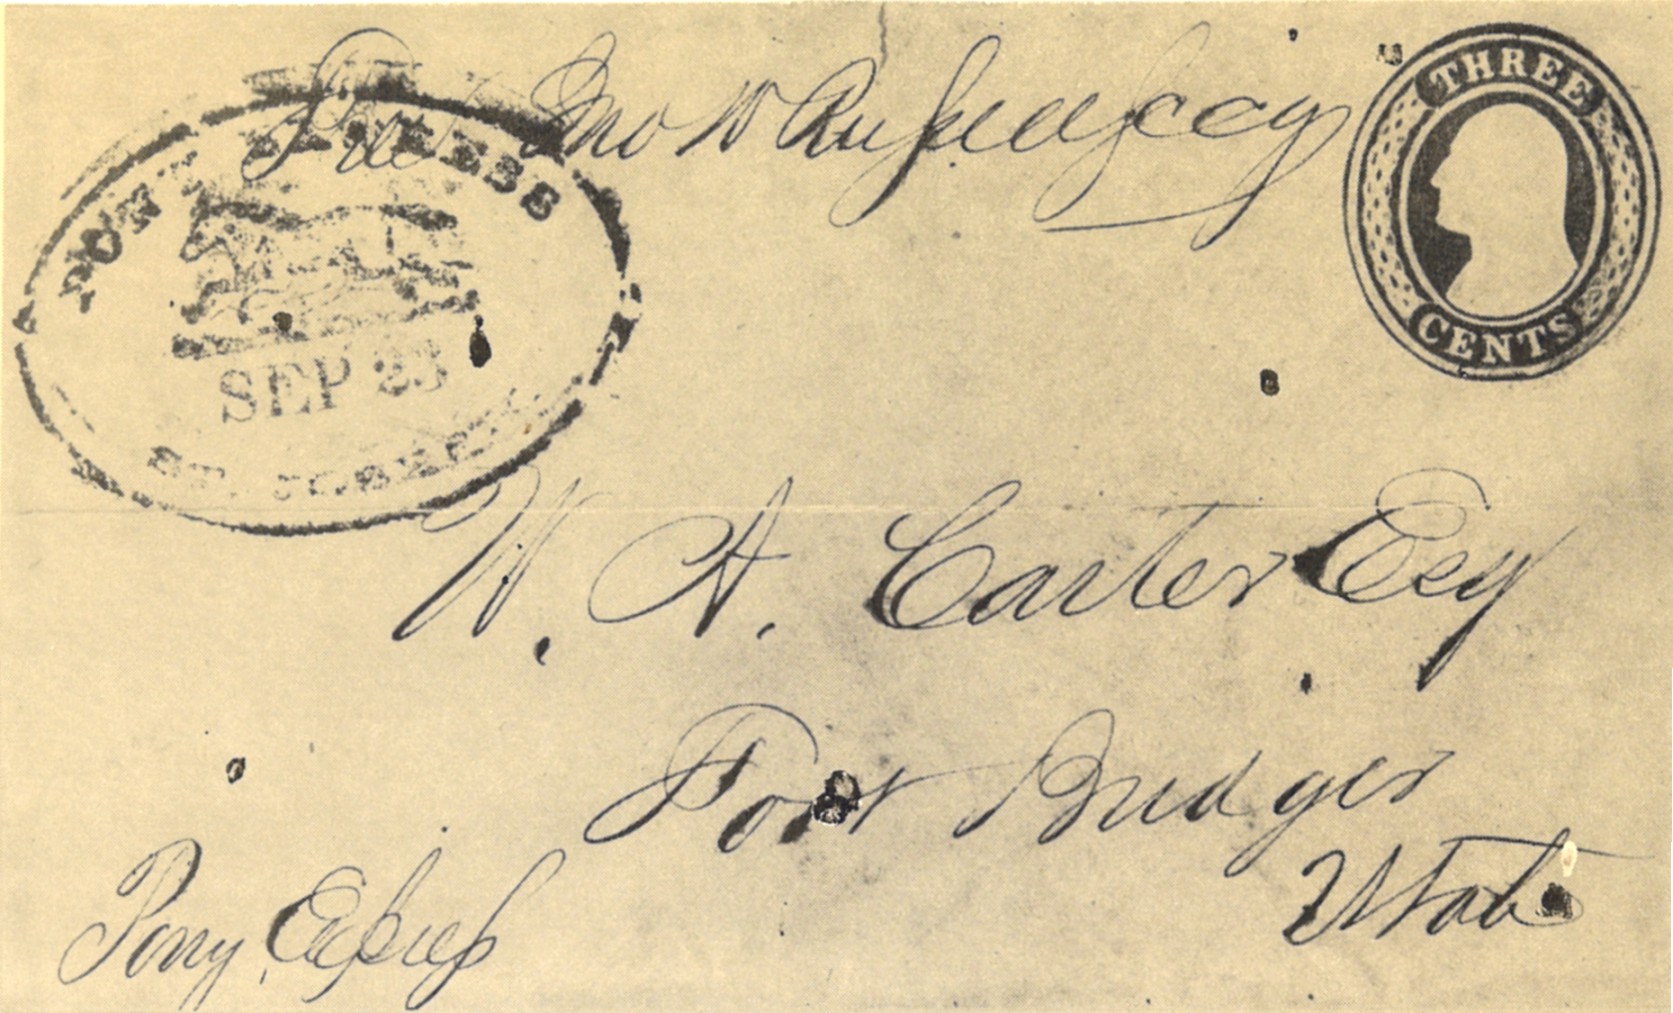 Free Jno W Russell Secy
THREE
CENTS
PONY EXPRESS
SEP 23
ST. JOSEPH
W. A. Carter Esq
Fort Bridger
Utah
Pony Express